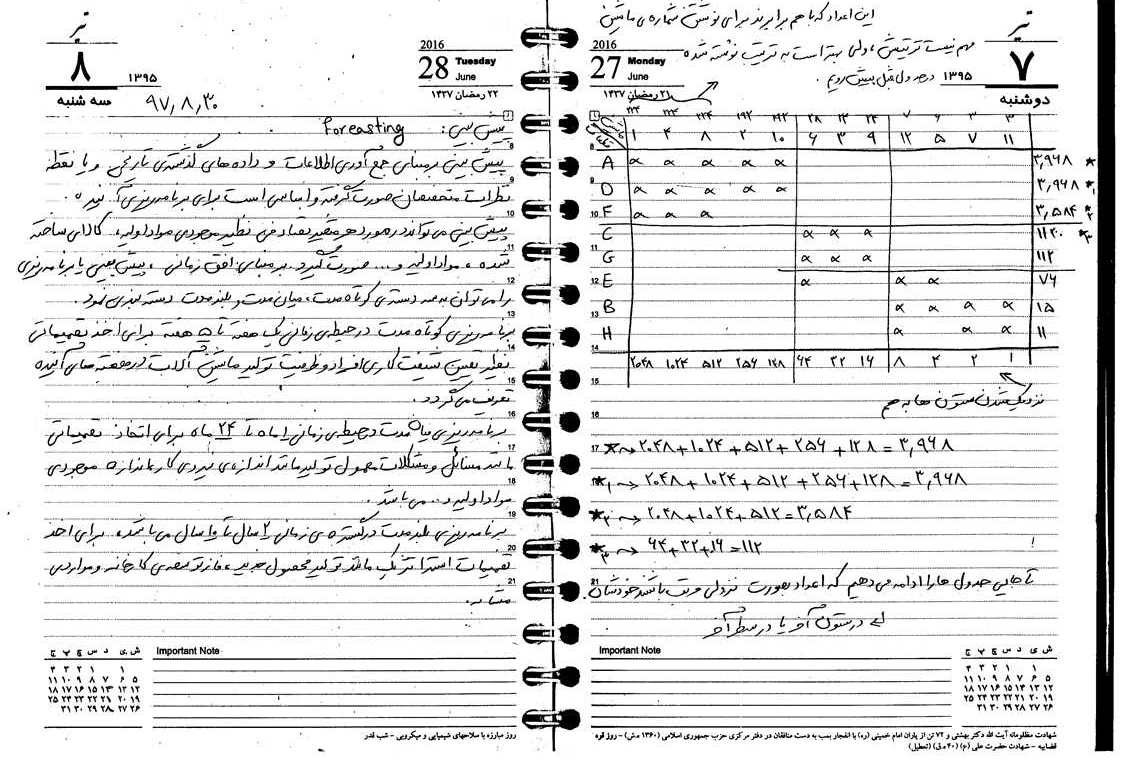 تیر
۷
۱۳۹۵
دوشنبه
2016
27 Monday
June
۲۱ رمضان ۱۴۳۷
این اعداد که با هم برابرند برای نوشتن شماره ی ماشین
مهم نیست ترتیبش، ولی بهتر است به ترتیب نوشته شده
در جدول قبل پیش رویم.
۲۲۴ ۲۲۴ ۲۲۴ ۱۹۲ ۱۹۲ ۲۸ ۲۴ ۲۴ ۷ ۶ ۳ ۳
۱ ۴ ۸ ۲ ۱۰ ۶ ۳ ۹ ۱۲ ۵ ۷ ۱۱
A α α α α α ۳,۹۶۸ *
D α α α α α ۳,۹۶۸ *۱
F α α α ۳,۵۸۴ *۲
C α α α ۱۱۲۰ *۳
G α α α ۱۱۲
E α α α ۷۶
B α α α α ۱۵
H α α α ۱۱
۲۰۴۸ ۱۰۲۴ ۵۱۲ ۲۵۶ ۱۲۸ ۶۴ ۳۲ ۱۶ ۸ ۴ ۲ ۱
نزدیک شدن ستون ها به هم
* → ۲۰۴۸+۱۰۲۴+۵۱۲+۲۵۶+۱۲۸=۳,۹۶۸
*۱ → ۲۰۴۸+۱۰۲۴+۵۱۲+۲۵۶+۱۲۸=۳,۹۶۸
*۲ → ۲۰۴۸+۱۰۲۴+۵۱۲=۳,۵۸۴
*۳ → ۶۴+۳۲+۱۶=۱۱۲
تا جایی جدول ها را ادامه می دهیم که اعداد بصورت نزولی مرتب باشند خودشان
در ستون آخر یا در سطر آخر
Important Note
ش ی د س چ پ ج
شهادت مظلومانه آیت الله دکتر بهشتی و ۷۲ تن از یاران امام خمینی (ره) با انفجار بمب به دست منافقان در دفتر مرکزی حزب جمهوری اسلامی (۱۳۶۰ ه.ش) - روز قوه
قضاییه - شهادت حضرت علی (ع) (۴۰ ه.ق) (تعطیل)
تیر
۸
۱۳۹۵
سه شنبه
2016
28 Tuesday
June
۲۲ رمضان ۱۴۳۷
۹۷,۸,۳۰
پیش بینی: Foreasting
پیش بینی بر مبنای جمع آوری اطلاعات و داده های گذشته ی تاریخی و یا نقطه
نظرات متخصصان صورت گرفته و اساسی است برای برنامه ریزی آینده.
پیش بینی می تواند در مورد هر متغیر تصادفی نظیر موجودی مواد اولیه، کالای ساخته
شده، مواد اولیه و... صورت گیرد. بر مبنای افق زمانی، پیش بینی یا برنامه ریزی
را می توان به سه دسته ی کوتاه مدت، میان مدت و بلند مدت دسته بندی نمود.
برنامه ریزی کوتاه مدت در حیطه ی زمانی یک هفته تا ۵ هفته برای اخذ تصمیماتی
نظیر تعیین شیفت کاری افراد و ظرفیت تولید ماشین آلات در هفته های آینده
تعریف می گردد.
برنامه ریزی میان مدت در حیطه ی زمانی ۱ ماه تا ۲۴ ماه برای اتخاذ تصمیماتی
مانند مسائل و مشکلات معمول تولید مانند اندازه ی نیروی کار یا اندازه موجودی
مواد اولیه و... می باشد.
برنامه ریزی بلند مدت در گستره ی زمانی ۲ سال تا ۱۰ سال می باشد، برای اخذ
تصمیمات استراتژیک مانند تولید محصول جدید، فاز توسعه ی کارخانه و مواردی
مشابه.
Important Note
ش ی د س چ پ ج
روز مبارزه با سلاحهای شیمیایی و میکروبی - شب قدر